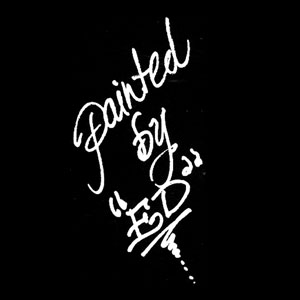 Painted
by
"ED"